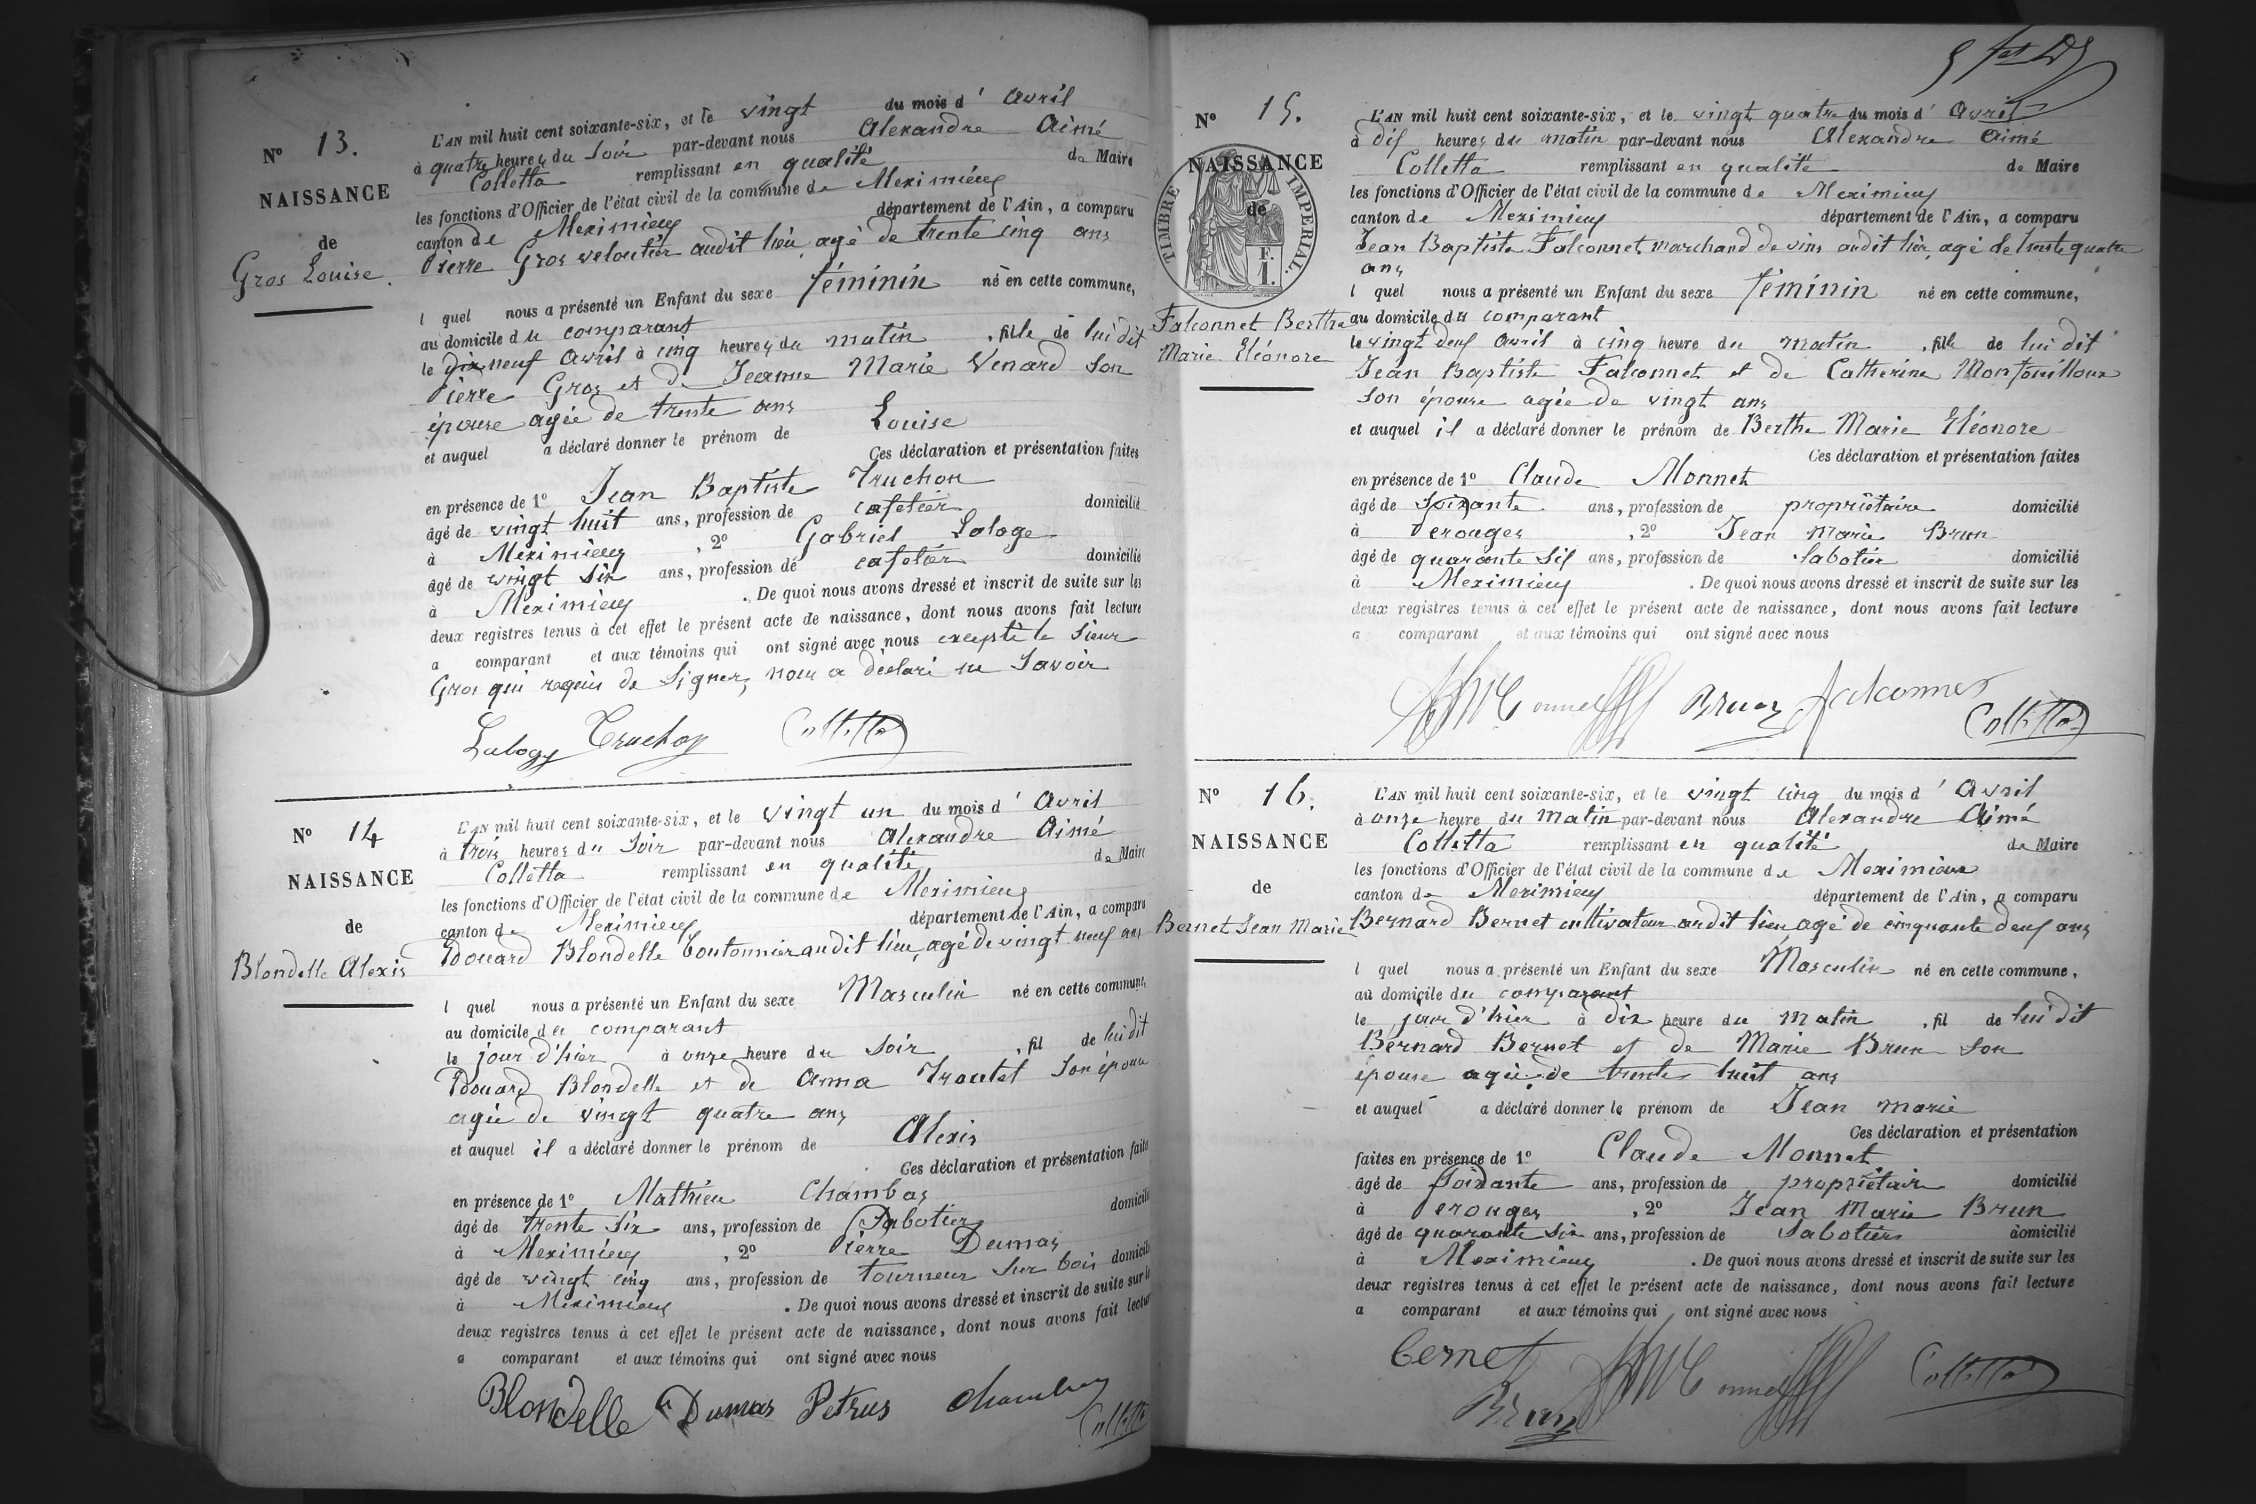 N° 13.
NAISSANCE
de
Gros Louise.
L'AN mil huit cent soixante-six, et le vingt du mois d' avril
à quatre heures du soir par-devant nous Alexandre Aimé
Colletta remplissant en qualité de Maire
les fonctions d'Officier de l'état civil de la commune de Meximieux
canton de Meximieux département de l'Ain, a comparu
Pierre Gros veloutier audit lieu, agé de trente cinq ans
l quel nous a présenté un Enfant du sexe féminin né en cette commune,
au domicile du comparant
le dix neuf avril à cinq heures du matin , fille de lui dit
Pierre Gros et de Jeanne Marie Venard son
épouse agée de trente ans
et auquel a déclaré donner le prénom de Louise
Ces déclaration et présentation faites
en présence de 1° Jean Baptiste Truchon
âgé de vingt huit ans, profession de cafetier domicilié
à Meximieux , 2° Gabriel Laloge
âgé de vingt six ans, profession de cafetier domicilié
à Meximieux . De quoi nous avons dressé et inscrit de suite sur les
deux registres tenus à cet effet le présent acte de naissance, dont nous avons fait lecture
a comparant et aux témoins qui ont signé avec nous excepté le sieur
Gros qui requis de signer, nous a déclaré ne savoir
Laloge Truchon Colletta
N° 14
NAISSANCE
de
Blondelle Alexis
L'AN mil huit cent soixante-six, et le vingt un du mois d' avril
à trois heures du soir par-devant nous Alexandre Aimé
Colletta remplissant en qualité de Maire
les fonctions d'Officier de l'état civil de la commune de Meximieux
canton de Meximieux département de l'Ain, a comparu
Edouard Blondelle boutonnier audit lieu, agé de vingt neuf ans
l quel nous a présenté un Enfant du sexe Masculin né en cette commune,
au domicile du comparant
le jour d'hier à onze heure du soir , fil de lui dit
Edouard Blondelle et de Anna Troutet son épouse
agée de vingt quatre ans
et auquel il a déclaré donner le prénom de Alexis
Ces déclaration et présentation faites
en présence de 1° Mathieu Chambas
âgé de trente six ans, profession de Sabotier domicilié
à Meximieux , 2° Pierre Dumas
âgé de vingt cinq ans, profession de tourneur sur bois domicilié
à Meximieux . De quoi nous avons dressé et inscrit de suite sur les
deux registres tenus à cet effet le présent acte de naissance, dont nous avons fait lecture
a comparant et aux témoins qui ont signé avec nous
Blondelle Dumas Petrus Chambas
Colletta
N° 15.
NAISSANCE
de
TIMBRE IMPERIAL.
F.
1.
Falconnet Berthe
Marie Eléonore
L'AN mil huit cent soixante-six, et le vingt quatre du mois d' avril
à dix heures du matin par-devant nous Alexandre Aimé
Colletta remplissant en qualité de Maire
les fonctions d'Officier de l'état civil de la commune de Meximieux
canton de Meximieux département de l'Ain, a comparu
Jean Baptiste Falconnet marchand de vins audit lieu, agé de trente quatre
ans
l quel nous a présenté un Enfant du sexe féminin né en cette commune,
au domicile du comparant
le vingt deux avril à cinq heure du matin , fille de lui dit
Jean Baptiste Falconnet et de Catherine Montouilloux
son épouse agée de vingt ans
et auquel il a déclaré donner le prénom de Berthe Marie Eléonore
Ces déclaration et présentation faites
en présence de 1° Claude Monnet
âgé de soixante ans, profession de propriétaire domicilié
à Perouges , 2° Jean Marie Brun
âgé de quarante six ans, profession de sabotier domicilié
à Meximieux . De quoi nous avons dressé et inscrit de suite sur les
deux registres tenus à cet effet le présent acte de naissance, dont nous avons fait lecture
a comparant et aux témoins qui ont signé avec nous
Monnet Brun Falconnet
Colletta
N° 16.
NAISSANCE
de
Bernet Jean Marie
L'AN mil huit cent soixante-six, et le vingt cinq du mois d' avril
à onze heure du matin par-devant nous Alexandre Aimé
Colletta remplissant en qualité de Maire
les fonctions d'Officier de l'état civil de la commune de Meximieux
canton de Meximieux département de l'Ain, a comparu
Bernard Bernet cultivateur audit lieu, agé de cinquante deux ans
l quel nous a présenté un Enfant du sexe Masculin né en cette commune,
au domicile du comparant
le jour d'hier à dix heure du matin , fil de lui dit
Bernard Bernet et de Marie Brun son
épouse agée de trente huit ans
et auquel a déclaré donner le prénom de Jean Marie
Ces déclaration et présentation
faites en présence de 1° Claude Monnet
âgé de soixante ans, profession de propriétaire domicilié
à Perouges , 2° Jean Marie Brun
âgé de quarante six ans, profession de Sabotier domicilié
à Meximieux . De quoi nous avons dressé et inscrit de suite sur les
deux registres tenus à cet effet le présent acte de naissance, dont nous avons fait lecture
a comparant et aux témoins qui ont signé avec nous
Bernet Monnet Colletta
Brun